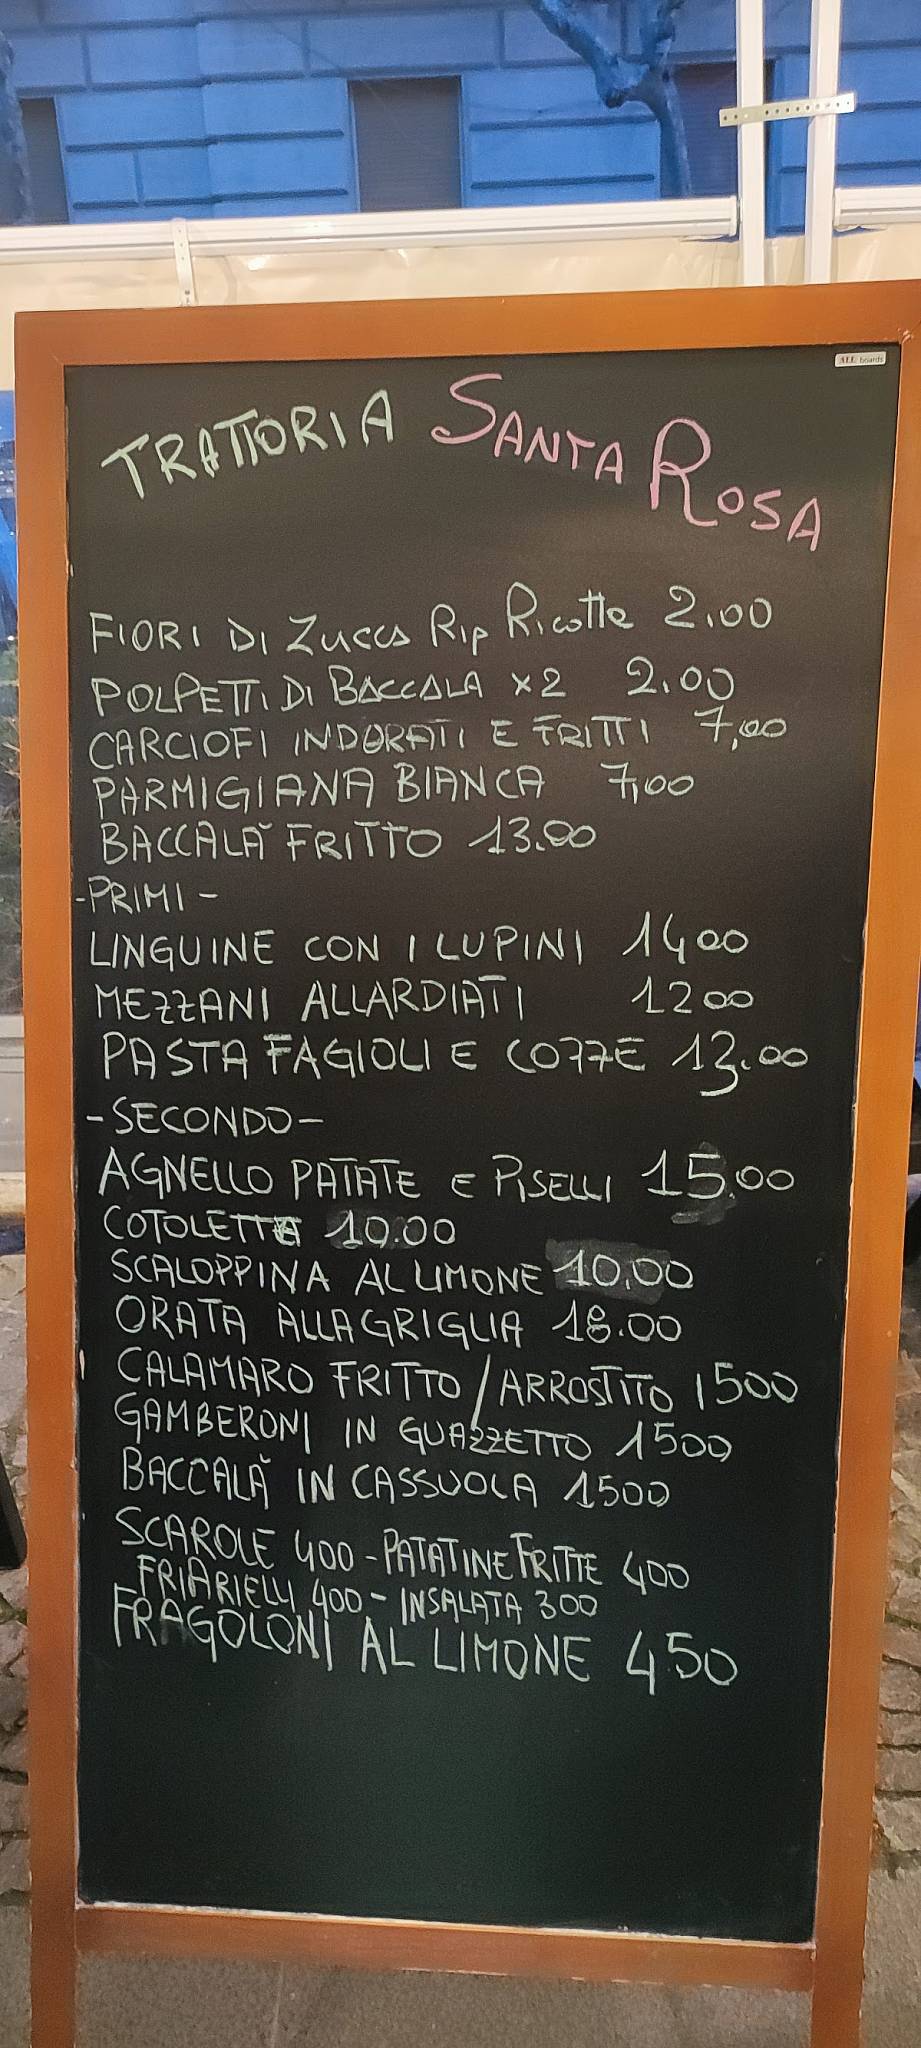 ALL boards
TRATTORIA SANTA ROSA
FIORI DI ZUCCA RIP RICOTTA 2.00
POLPETTI DI BACCALA x2 2.00
CARCIOFI INDORATI E FRITTI 7,00
PARMIGIANA BIANCA 7,00
BACCALÀ FRITTO 13.00
-PRIMI-
LINGUINE CON I LUPINI 1400
MEZZANI ALLARDIATI 1200
PASTA FAGIOLI E COZZE 13.00
-SECONDO-
AGNELLO PATATE E PISELLI 15.00
COTOLETTA 10.00
SCALOPPINA AL LIMONE 10.00
ORATA ALLA GRIGLIA 18.00
CALAMARO FRITTO/ARROSTITO 1500
GAMBERONI IN GUAZZETTO 1500
BACCALÀ IN CASSUOLA 1500
SCAROLE 400 - PATATINE FRITTE 400
FRIARIELLI 400 - INSALATA 300
FRAGOLONI AL LIMONE 450